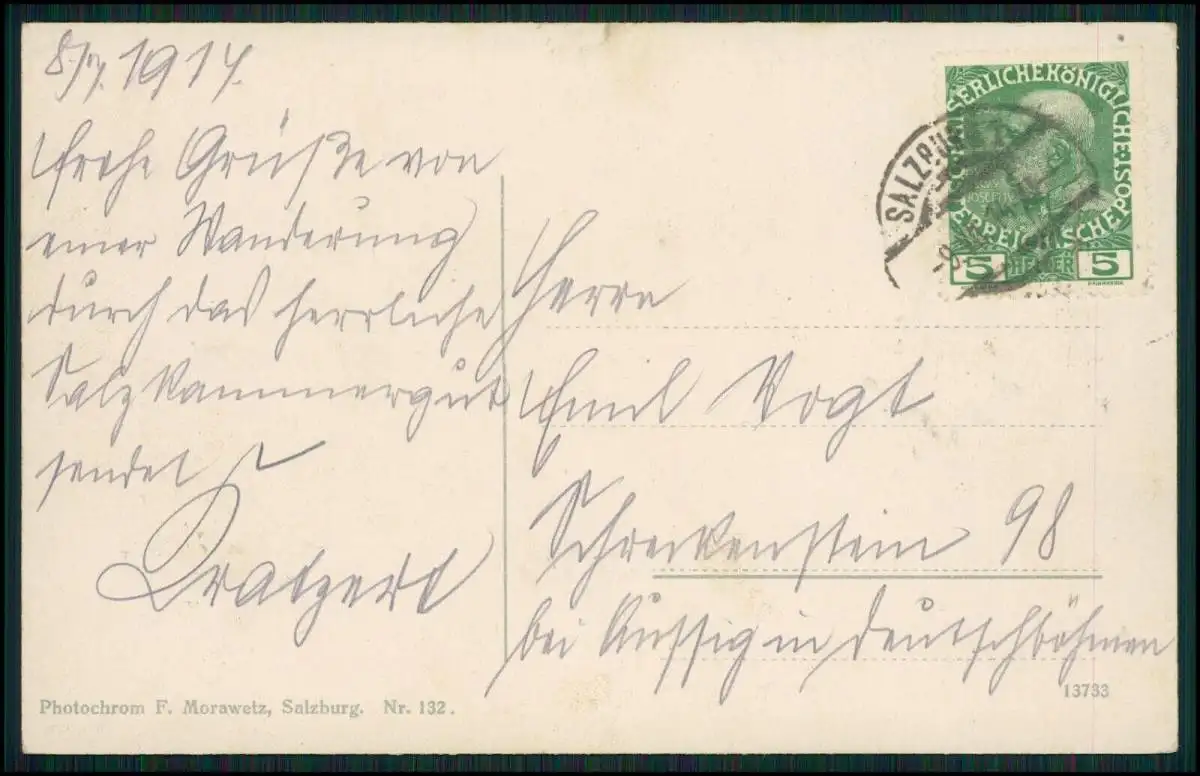 8/7. 1914.
frohe Grüße von
einer Wanderung
durch das herrliche
Salzkammergut
sendet
Kratzert
Herrn
Emil Vogt
Schreckenstein 98
bei Aussig in Deutschböhmen
KAISERLICHE KÖNIGLICHE ÖSTERREICHISCHE POST
5 HELLER 5
SALZBURG
Photochrom F. Morawetz, Salzburg. Nr. 132.
13733